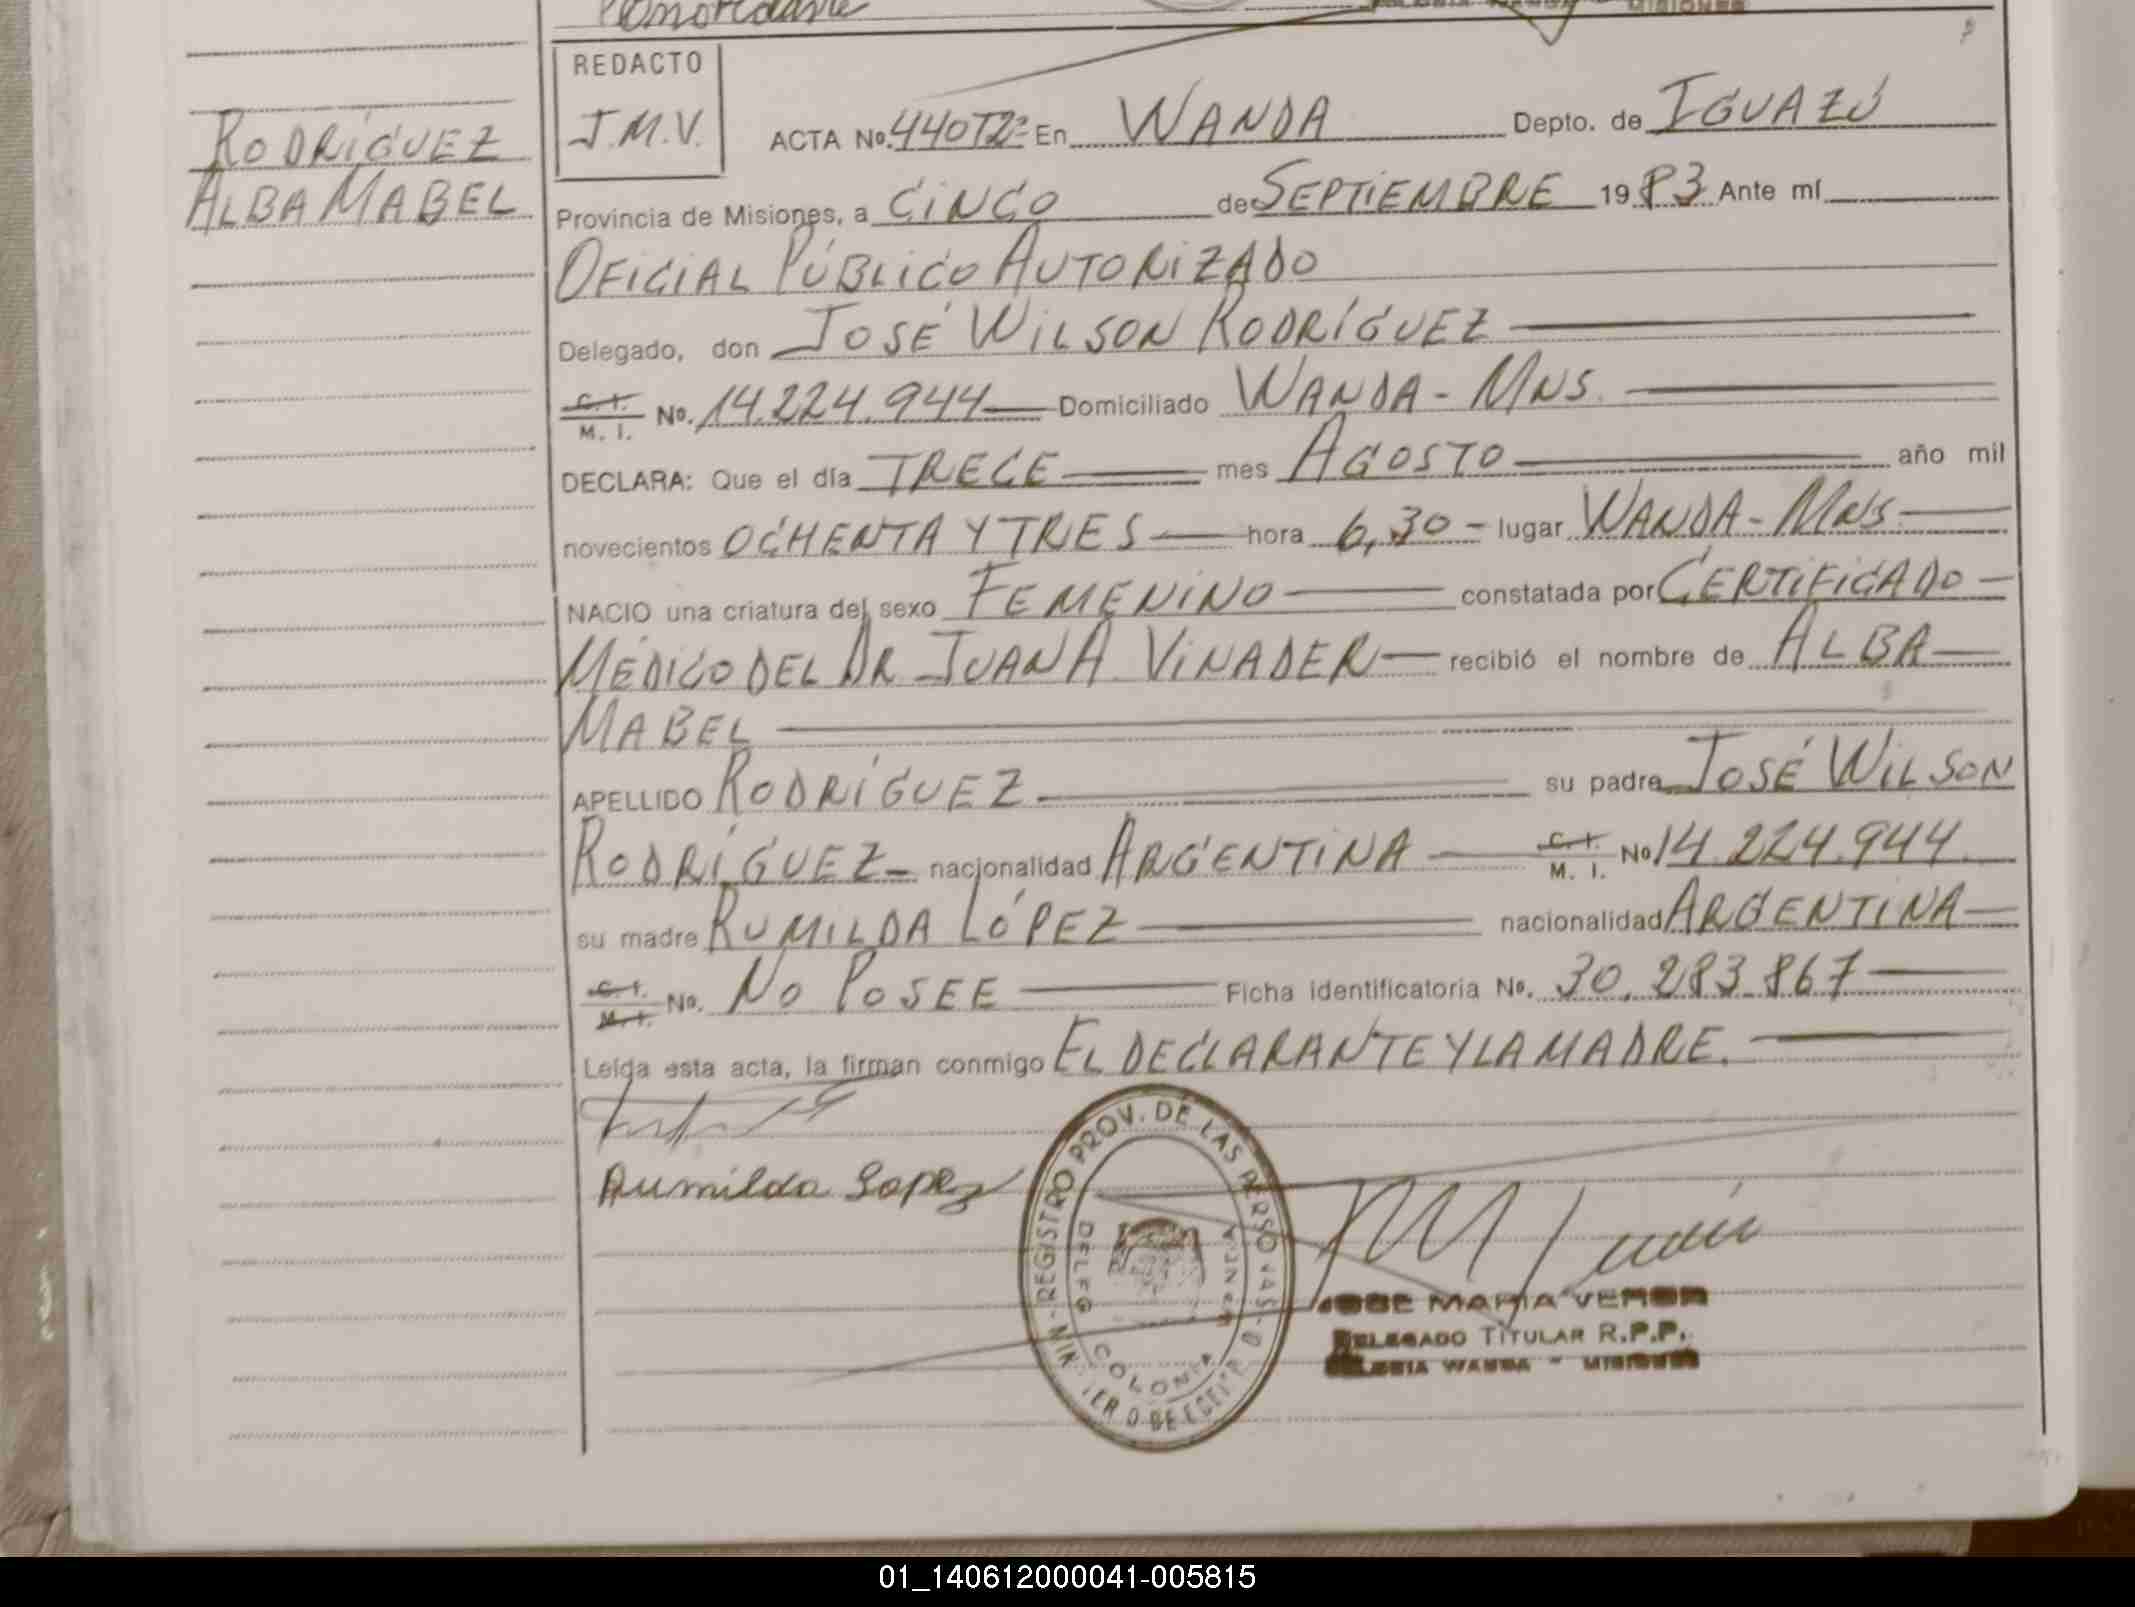 REDACTO
J.M.V.
RODRÍGUEZ
ALBA MABEL
ACTA No. 440T2º En WANDA Depto. de IGUAZÚ
Provincia de Misiones, a CINCO de SEPTIEMBRE 1983 Ante mí
OFICIAL PÚBLICO AUTORIZADO
Delegado, don JOSÉ WILSON RODRÍGUEZ
C. I. M. I. No. 14.224.944 Domiciliado WANDA - MNS.
DECLARA: Que el día TRECE mes AGOSTO año mil
novecientos OCHENTA Y TRES hora 6,30 - lugar WANDA - MNS
NACIO una criatura del sexo FEMENINO constatada por CERTIFICADO
MÉDICO DEL DR JUAN A. VINADER recibió el nombre de ALBA
MABEL
APELLIDO RODRÍGUEZ su padre JOSÉ WILSON
RODRÍGUEZ nacionalidad ARGENTINA C. I. M. I. No 14.224.944
su madre RUMILDA LÓPEZ nacionalidad ARGENTINA
C. I. M. I. No. NO POSEE Ficha identificatoria No. 30.283.867
Leída esta acta, la firman conmigo EL DECLARANTE Y LA MADRE.
Rumilda Lopez
REGISTRO PROV. DE LAS PERSONAS
COLONIA
JOSE MARIA
DELEGADO TITULAR R.P.P.
COLONIA WANDA - MISIONES
01_140612000041-005815